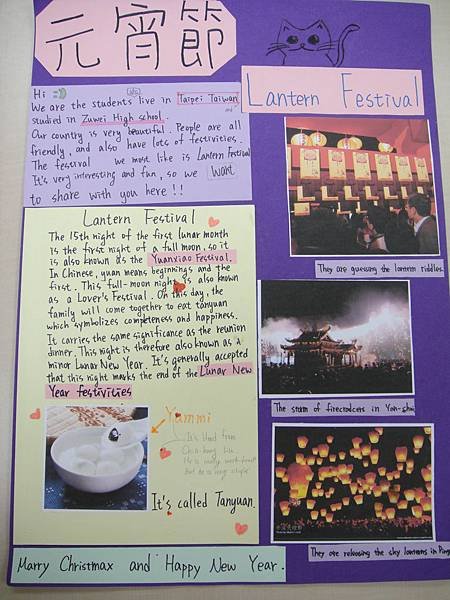 元宵節
Lantern Festival
Hi
We are the students live in Taipei Taiwan and
studied in Zuwei High school.
Our country is very beautiful. People are all
friendly, and also have lots of festivities.
The festival we most like is Lantern Festival
It's very interesting and fun, so we want
to share with you here !!
Lantern Festival
The 15th night of the first lunar month
is the first night of a full moon, so it
is also known as the Yuanxiao Festival.
In Chinese, yuan means beginnings and the
first. This full-moon night is also known
as a Lover's Festival. On this day, the
family will come together to eat tanyuan
which symbolizes completeness and happiness.
It carries the same significance as the reunion
dinner. This night is therefore also known as a
minor Lunar New Year. It's generally accepted
that this night marks the end of the Lunar New
Year festivities
Yummi
It's
It's called Tanyuan.
They are guessing the lantern riddles.
The storm of firecrackers in Yan-shui
They are releasing the sky lanterns in Ping
Marry Christmax and Happy New Year.